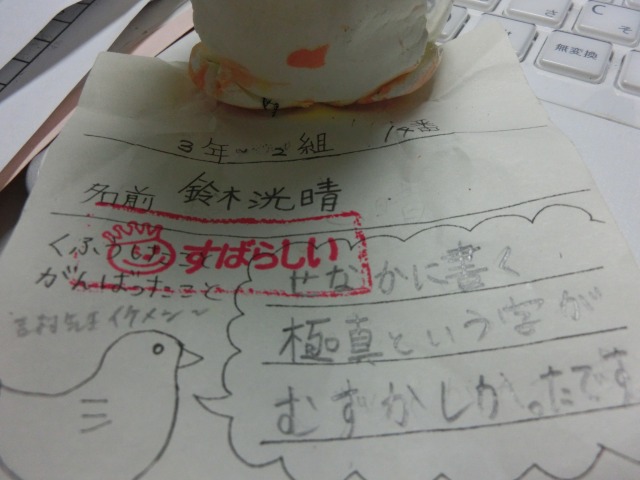 さ
C
そ
無変換
3年 2組 14番
名前 鈴木洸晴
くふうした
すばらしい
がんばったこと
先生イケメン〜
せなかに書く
極真という字が
むずかしかったです